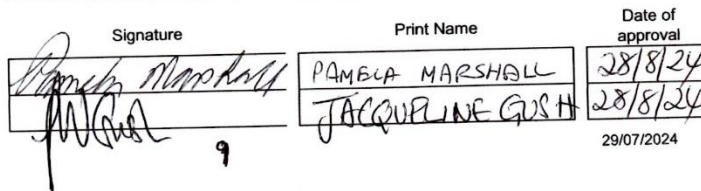 Signature Print Name Date of approval
Pamela Marshall PAMELA MARSHALL 28/8/24
JACQUELINE GUSH 28/8/24
29/07/2024
9